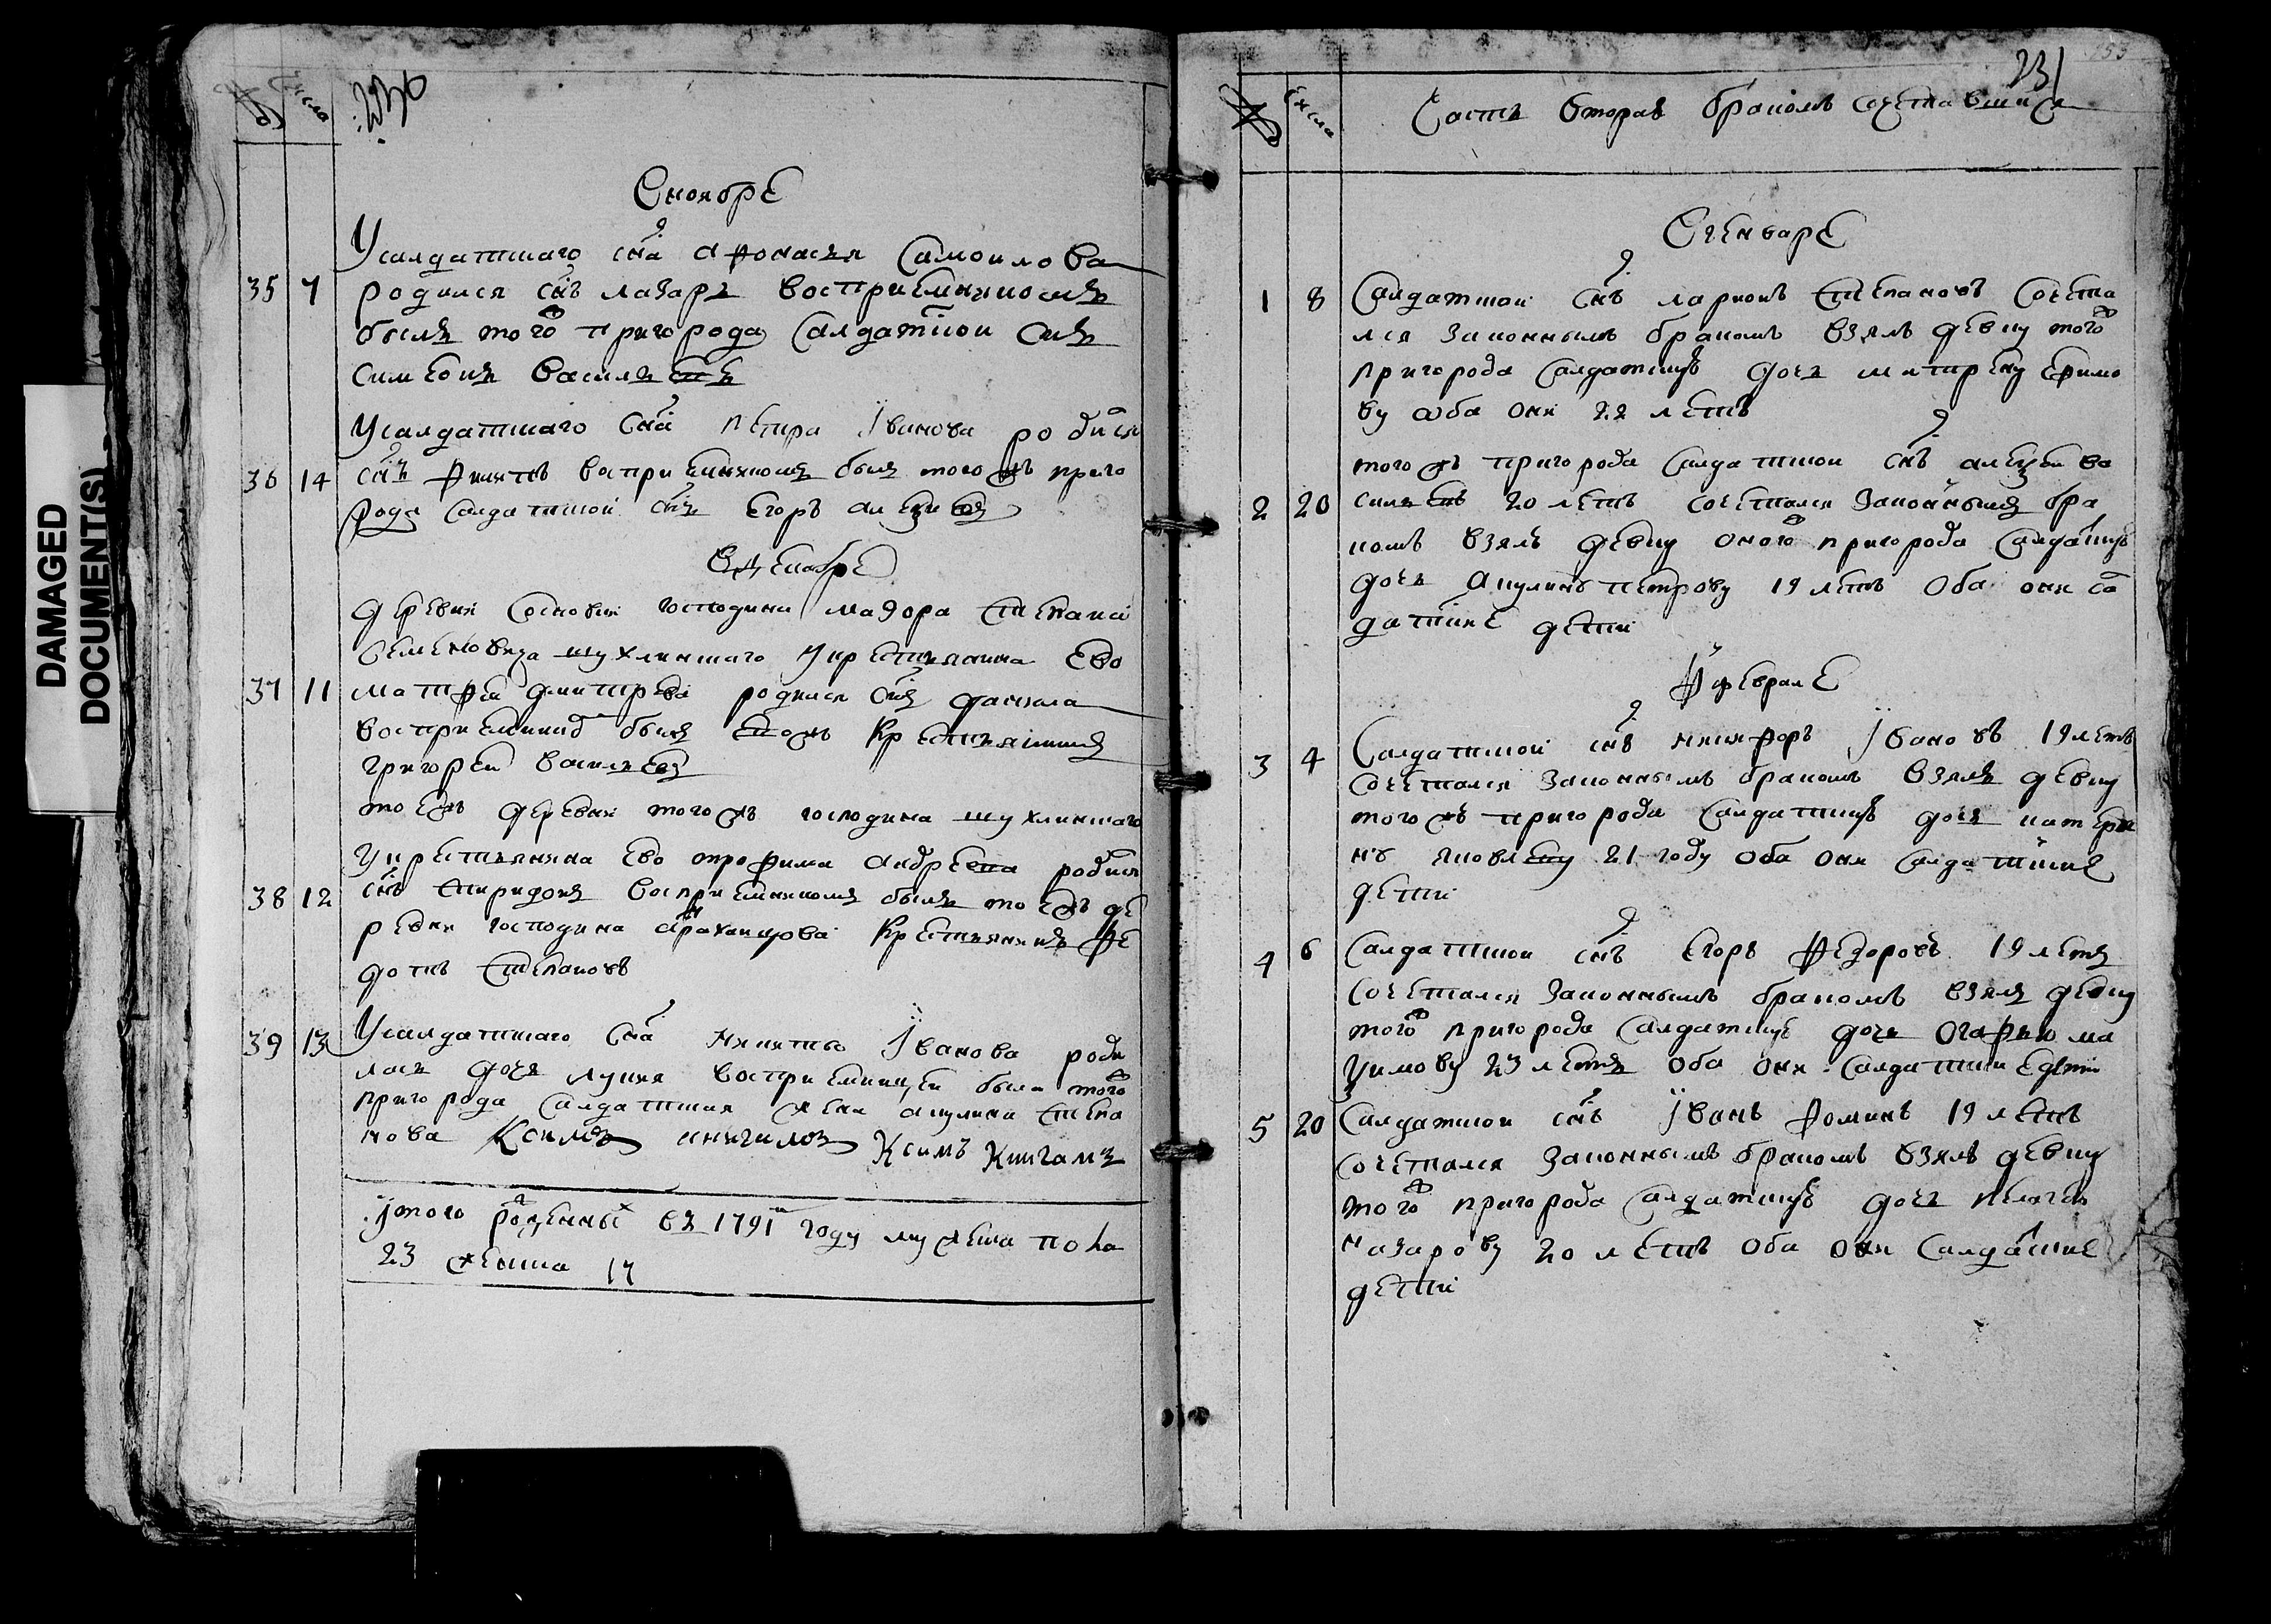 DAMAGED
DOCUMENT(S)
№ Числа 230
Сноября
Усалдатцкаго сна афонасья Самоилова
35 7 родился снъ лазарь восприемникомъ
былъ того ж пригорода Салдатской снъ
Симеонъ Васильевъ
Усалдатцкаго сна петра Iванова родился
36 14 снъ филипъ восприемникомъ былъ того жъ приго
рода салдатцкой снъ Егоръ алексеевъ
Вдекабре
деревни Сосновки господина маэора Степана
Семеновича шухлинскаго укрестьянина Ево
37 11 матфея дмитрева родился снъ данила
восприемникъ былъ ево жъ Крестьянинъ
григореи васильевъ
тоежъ деревни того жъ господина шухлинскаго
укрестьянина ево трофима андреева родился
38 12 снъ спиридонъ восприемникомъ былъ тоежъ де
ревни господина Крестьянинъ фе
дотъ степановъ
39 13 Усалдатцкаго сна никиты Iванова роди
лась дочь лукия восприемницеи была того ж
пригорода салдатская жена акулина степа
нова Ксимъ книгамъ Ксимъ Книгамъ
Iтого рожденныхъ въ 1791м году мужеска пола
23 женска 17
231
153
№ Числа Часть вторая бракомъ сочетавшися
Сгенваре
1 8 Салдатской снъ ларионъ степановъ Сочета
лся законнымъ бракомъ взялъ девку того ж
пригорода салдатскую дочь матрену ефимо
ву оба они 22 летъ
того жъ пригорода салдатцкой снъ алексеи ва
2 20 сильевъ 20 летъ сочетался законнымъ бра
комъ взялъ девку оного ж пригорода салдатскую
дочь акулину петрову 19 летъ Оба они сал
датские дети
Вфеврале
3 4 Салдатцкой снъ никифоръ Iвановъ 19 летъ
сочетался законнымъ бракомъ взялъ девку
того жъ пригорода салдатскую дочь катери
ну яковлеву 21 году оба они салдатские
дети
4 6 Салдатцкой снъ Егоръ федоровъ 19 летъ
сочетался законнымъ бракомъ взялъ девку
того ж пригорода салдатскую дочь огафью ма
ксимову 23 летъ оба они салдатские дети
5 20 Салдатской снъ Iванъ фоминъ 19 летъ
сочетался законнымъ бракомъ взялъ девку
того ж пригорода салдатскую дочь пелагею
назарову 20 летъ оба они салдатские
дети